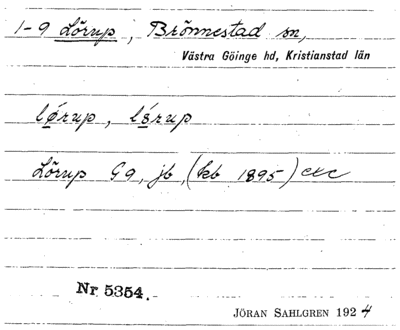 1-9 Lörup, Brönnestad sn,
Västra Göinge hd, Kristianstad län
lǿrup, lǿrup
Lörup G9, jb, (kb 1895) etc
Nr 5354.
JÖRAN SAHLGREN 1924